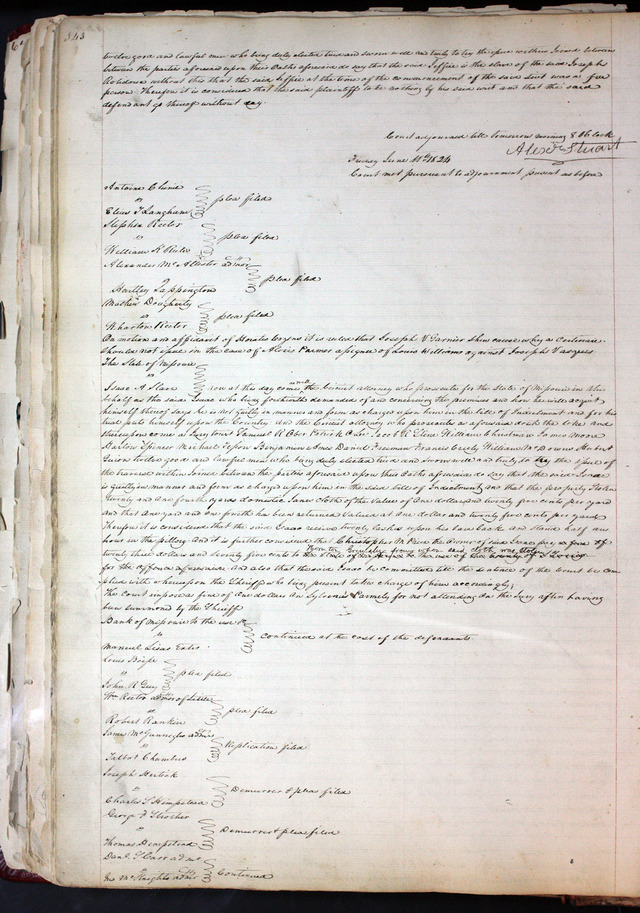 343
twelve good and lawful men who being duly elected tried and sworn well and truly to try the issue within Joined between
between the parties aforesaid upon their Oaths aforesaid do say that the said Jeffrie is the slave of the said Joseph
Robidoux without this that the said Jeffrie at the time of the commencement of the said Suit was a free
person. Therefore it is considered that the said plaintiff take nothing by his said writ and that the said
defendant go thereof without day.
Court adjourned till tomorrow morning 8 OClock
Alexr Stuart
Friday June 11th 1824
Court met pursuant to adjournment present as before
Antoine Chenie
vs plea filed
Elias T Langham
Stephen Rector
vs plea filed
William R
Alexander McAllister admor
vs plea filed
Hartley Sappington
Mathew Dougherty
vs plea filed
Wharton Rector
On motion and affidavit of Horatio Cozens it is ruled that Joseph V Garnier Shew cause why a Certiorari
Should not issue in the case of Alexis Parmer assignee of Louis Williams against Joseph Vasquez
The State of Missouri
vs
Isaac A Slave now at this day comes the Circuit attorney who prosecutes for the State of Missouri in this
behalf as the said Isaac who being forthwith demanded of and concerning the premises and how he will acquit
himself thereof says he is not guilty in manner and form as charged upon him in the bill of Indictment and for his
trial puts himself upon the Country, and the Circuit attorney who prosecutes as aforesaid doth the like and
thereupon came a Jury to wit Samuel R Ober Patrick Lee Jacob R William Christman James Moore
Barlow Spencer Michael Benjamin Ames Daniel Freeman Francis William McDowell Hubert
Guion twelve good and lawful men who being duly elected tried and sworn well and truly to try the Issue of
the traverse within Joined between the parties aforesaid upon their Oath aforesaid do say that the said Isaac
is guilty in manner and form as charged upon him in the said bill of Indictment, and that the property Stolen
twenty and one fourth yards domestic Cloth of the value of One dollar and twenty five cents per yard
and that one yard and one fourth has been returned valued at one dollar and twenty five cents per yard.
Therefore it is considered that the said Isaac receive twenty lashes upon his bare back and stand half an
hour in the pillory. And it is further considered that Christopher M Price the Owner of said Isaac pay a fine of
twenty three dollars and seventy five cents to the
for the offence aforesaid. And also that the said Isaac be committed till the sentence of the Court be com
plied with whereupon the Sheriff who being present takes charge of him accordingly.
The court impose a fine of one dollar on Sylvester Larmely for not attending on the Jury after having
been summoned by the Sheriff
Bank of Missouri to the use &c
vs Continued at the cost of the defendants
Manuel Lisas Extrs
Louis Boisse
vs plea filed
John R Guy
Wm Rector admor of Little
vs plea filed
Robert Rankin
James McGunnegles admrs
vs Replication filed
Talbot Chambers
Joseph Hertick
vs Demurrer & plea filed
Charles S Hempstead
George F Strother
vs Demurrer & plea filed
Thomas Hempstead
Danl admr
vs Continued
Jno McKnights admr